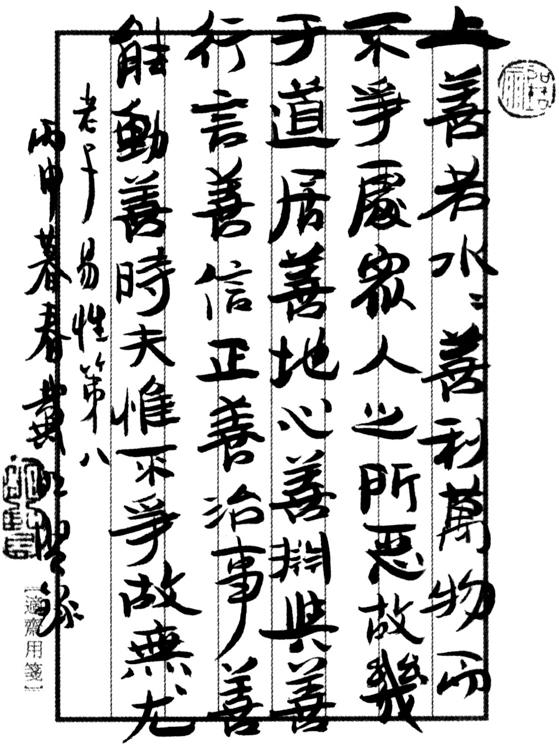 上善若水〻善利萬物而
不爭處衆人之所惡故幾
于道居善地心善淵與善
行言善信正善治事善
能動善時夫惟不爭故無尤
老子易性第八
丙申暮春黃
適齋用箋